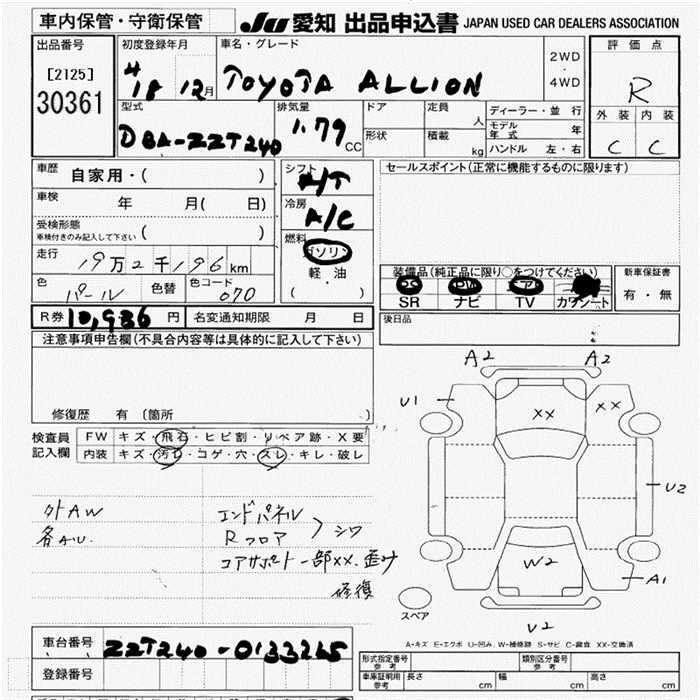 車内保管・守衛保管
JU 愛知 出品申込書 JAPAN USED CAR DEALERS ASSOCIATION
出品番号
[2125]
30361
初度登録年月
H18 12月
車名・グレード
TOYOTA ALLION
2WD
・
4WD
評価点
R
外装 内装
C C
型式
DBA-ZZT240
排気量
1.79 CC
ドア
形状
定員 人
積載 kg
ディーラー・並行
モデル年式 年
ハンドル 左・右
車歴
自家用・( )
車検 年 月( 日)
受検形態
車検付きのみ記入して下さい ( )
走行 19万2千196km
色 パール 色替 色コード 070
シフト
A/T
冷房
A/C
燃料
ガソリン
軽・油
( )
セールスポイント(正常に機能するものに限ります)
装備品(純正品に限り○をつけてください)
SR ナビ TV カワシート
新車保証書
有・無
R券 10,986円 名変通知期限 月 日
後日品
注意事項申告欄(不具合内容等は具体的に記入して下さい)
修復歴 有 〔箇所 〕
検査員
記入欄
FW キズ・飛石・ヒビ割・リペア跡・X要
内装 キズ・汚レ・コゲ・穴・スレ・キレ・破レ
外AW
各AU.
エンドパネル
Rフロア 〉シワ
コアサポート一部XX.歪み
修復
A2
A2
U1
XX
XX
U2
W2
A1
U2
スペア
A-キズ E-エクボ U-凹み W-補修跡 S-サビ C-腐食 XX-交換済
車台番号 ZZT240-0133265
登録番号
形式指定番号
参考
類別区分番号
参考
車庫証明用
参考
長さ cm 幅 cm 高さ cm